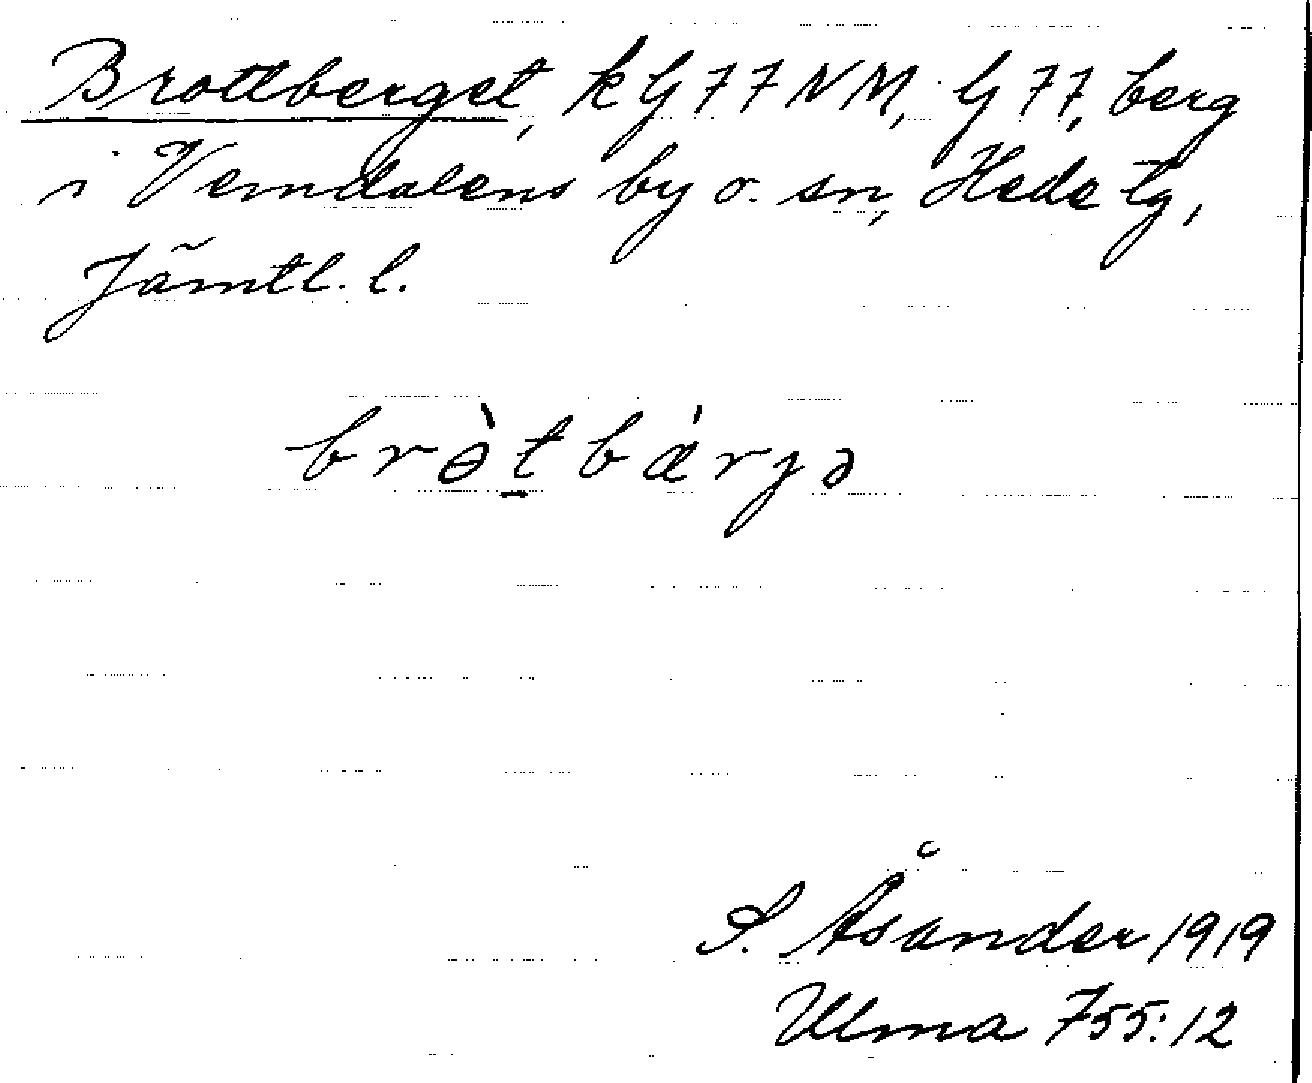 Brottberget, k G 77 NM, G 77, berg
i Vemdalens by o. sn, Hede tg,
Jämtl. l.
brɵ̀t̠bárjə
S. Åsander 1919
Ulma 755:12